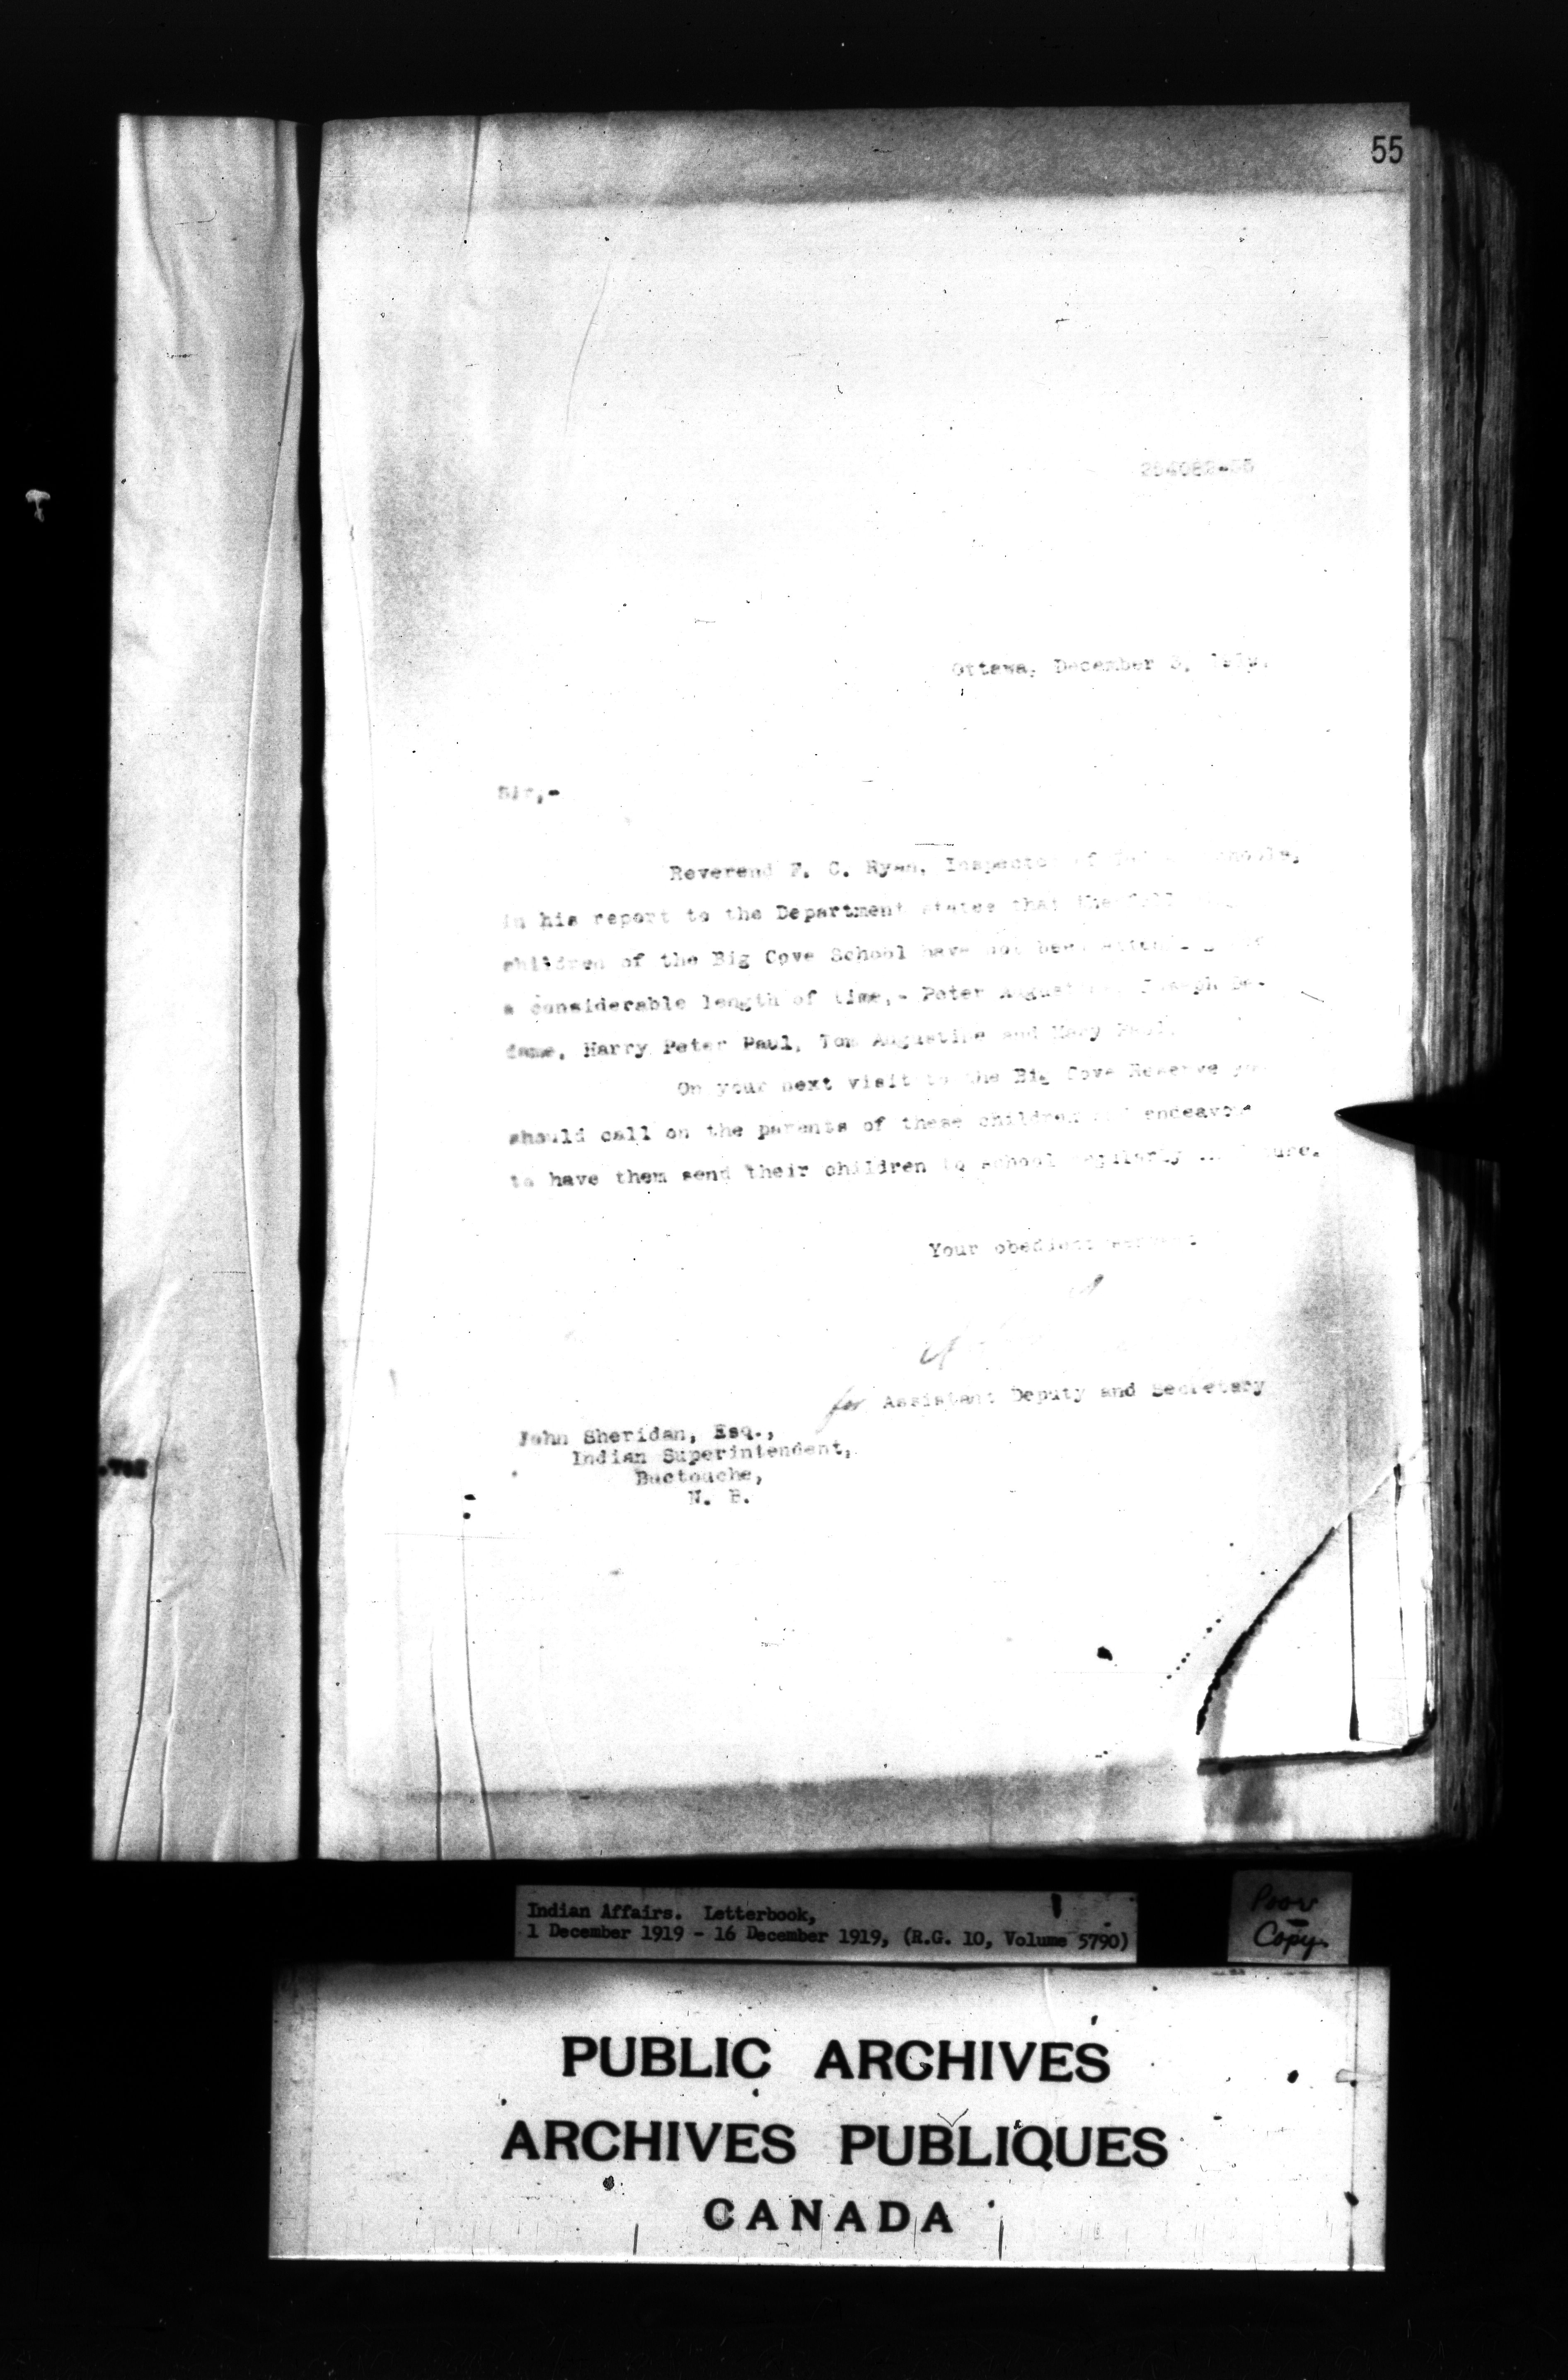 55
Ottawa, December 3, 1919.
Sir,-
Reverend F. C. Ryan, Inspector of Schools,
in his report to the Department states that the
children of the Big Cove School have not been
a considerable length of time,- Peter Joseph
dame, Harry Peter Paul, Tom Augustine and Mary Paul.
On your next visit to the Big Cove Reserve
should call on the parents of these children endeavour
to have them send their children to school
Your obedient servant
for Assistant Deputy and Secretary
John Sheridan, Esq.,
Indian Superintendent,
Buctouche,
N. B.
Indian Affairs. Letterbook,
1 December 1919 - 16 December 1919, (R.G. 10, Volume 5790)
Poor
Copy
PUBLIC ARCHIVES
ARCHIVES PUBLIQUES
CANADA